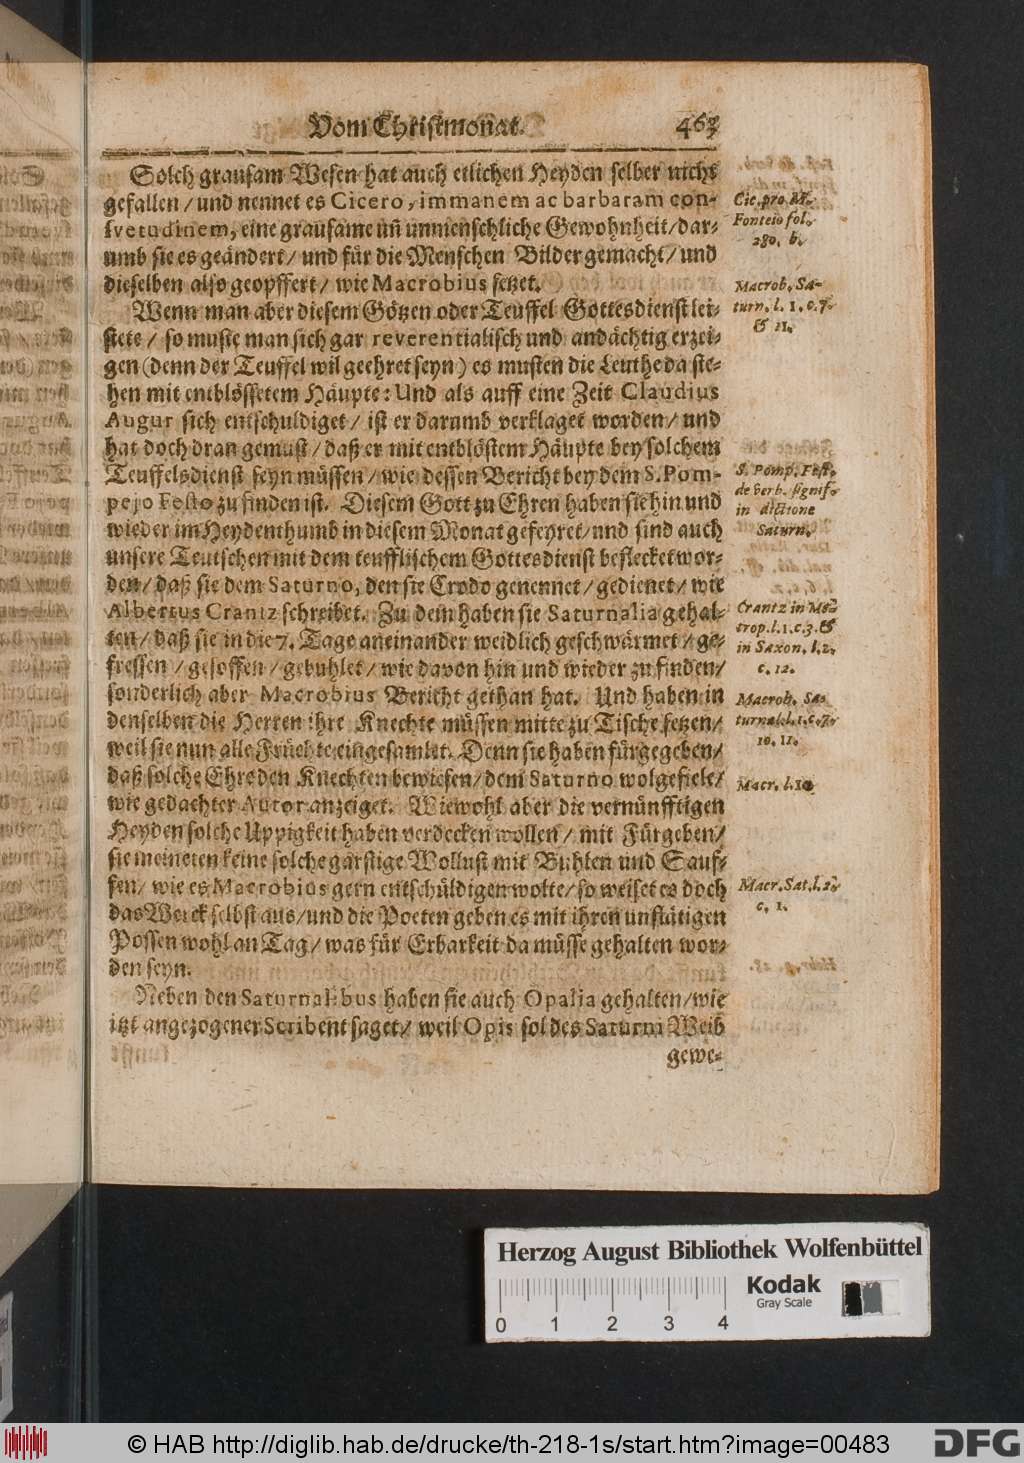 Vom Christmonat. 463
Solch grausam Wesen hat auch etlichen Heyden selber nicht
gefallen / und nennet es Cicero, immanem ac barbaram con-
svetudinem, eine grausame uñ unmenschliche Gewohnheit / dar-
umb sie es geändert / und für die Menschen Bilder gemacht / und
dieselben also geopffert / wie Macrobius setzet.
Wenn man aber diesem Götzen oder Teuffel Gottesdienst lei-
stete / so muste man sich gar reverentialisch und andächtig erzei-
gen (denn der Teuffel wil geehret seyn) es musten die Leuthe da ste-
hen mit entblössetem Häupte: Und als auff eine Zeit Claudius
Augur sich entschuldiget / ist er darumb verklaget worden / und
hat doch dran gemust / daß er mit entblöstem Häupte bey solchem
Teuffelsdienst seyn müssen / wie dessen Bericht bey dem S. Pom-
pejo Festo zu finden ist. Diesem Gott zu Ehren haben sie hin und
wieder im Heydenthumb in diesem Monat gefeyret / und sind auch
unsere Teutschen mit dem teufflischem Gottesdienst beflecket wor-
den / daß sie dem Saturno, den sie Crodo genennet / gedienet / wie
Albertus Crantz schreibet. Zu dem haben sie Saturnalia gehal-
ten / daß sie in die 7. Tage aneinander weidlich geschwärmet / ge-
fressen / gesoffen / gebuhlet / wie davon hin und wieder zu finden /
sonderlich aber Macrobius Bericht gethan hat. Und haben in
denselben die Herren ihre Knechte müssen mitte zu Tische setzen /
weil sie nun alle Früchte eingesamlet. Denn sie haben fürgegeben /
daß solche Ehre den Knechten bewiesen / dem Saturno wolgefiele /
wie gedachter Autor anzeiget. Wiewohl aber die vernünfftigen
Heyden solche Uppigkeit haben verdecken wollen / mit Fürgeben /
sie meineten keine solche garstige Wollust mit Buhlen und Sauf-
fen / wie es Macrobius gern entschüldigen wolte / so weiset es doch
das Werck selbst aus / und die Poeten geben es mit ihren unflätigen
Possen wohl an Tag / was für Erbarkeit da müsse gehalten wor-
den seyn.
Neben den Saturnalibus haben sie auch Opalia gehalten / wie
itzt angezogener Scribent saget / weil Opis sol des Saturni Weib
gewe-
Cic. pro M.
Fonteio fol.
280. b.
Macrob. Sa-
turn. l. 1. c. 7.
& 11.
S. Pomp. Fest.
de verb. signif.
in dictione
Saturn.
Crantz in Me-
trop. l. 1. c. 3. &
in Saxon. l. 2.
c. 12.
Macrob. Sa-
turnal. l. 1. c. 7.
10. 11.
Macr. l. 10
Macr. Sat. l. 2.
c. 1.
Herzog August Bibliothek Wolfenbüttel
0 1 2 3 4
Kodak
Gray Scale
© HAB http://diglib.hab.de/drucke/th-218-1s/start.htm?image=00483
DFG